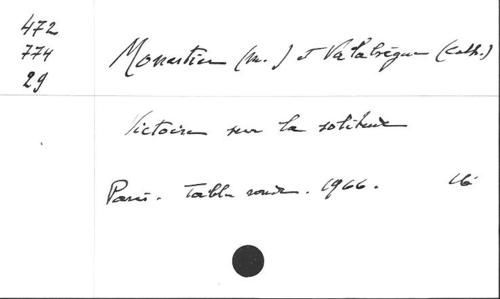 472
774
29
Monastier (M.) et Valabrègue (Cath.)
Victoire sur la solitude
Paris. Table ronde. 1966. 16°